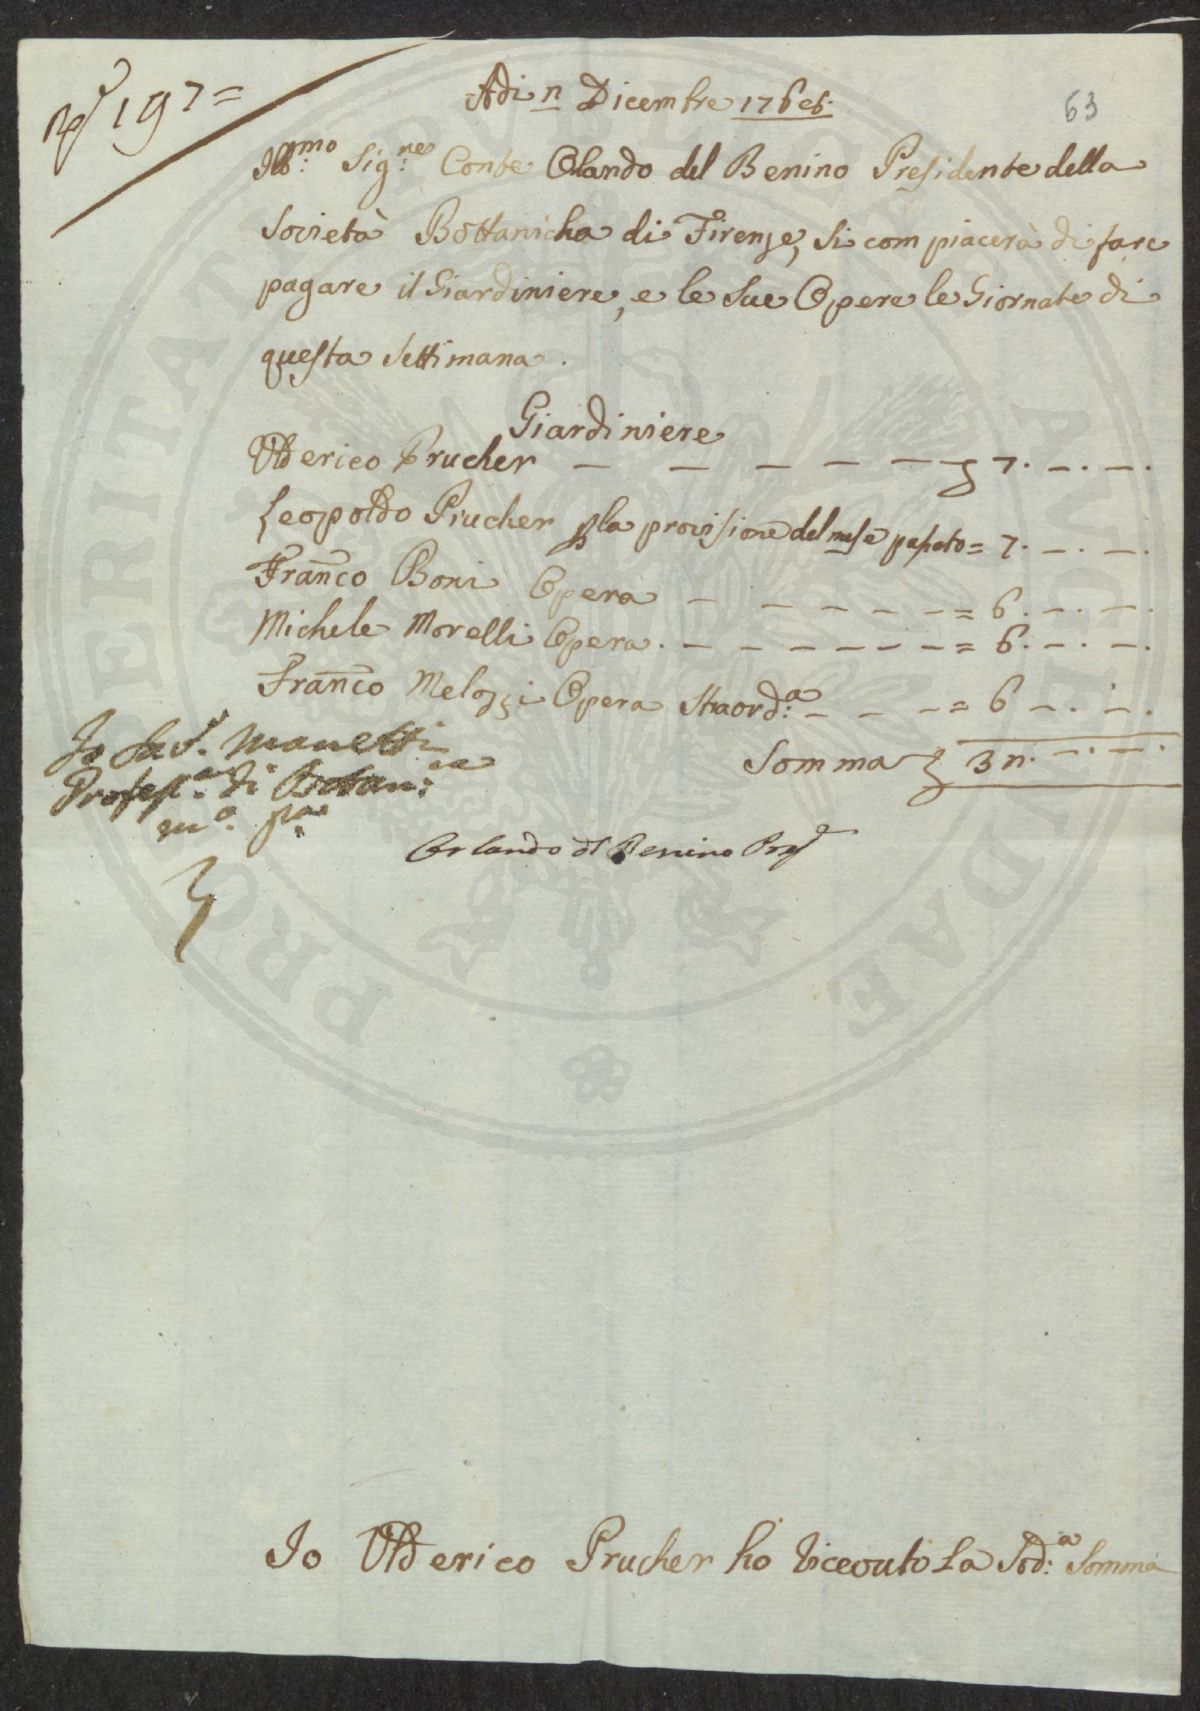 197=
63
Adi 2 Dicembre
Ill:mo Sig:re Conte Orlando del Benino Presidente della
Società Bottanicha di Firenze, si compiacerà di fare
pagare il Giardiniere, e le Sue Opere le Giornate di
questa Settimana.
Giardiniere
Ulderico Prucher — — — — — 7. —. —.
Leopoldo Prucher p la provisione del mese passato = 7. —. —.
Franco Boni Opera — — — — — = 6. —. —.
Michele Morelli Opera. — — — — — — = 6. —. —.
Franco Melozzi Opera Straord:a — — — = 6 —. —.
Somma 32. —. —.
Io Sav. Manetti
Profess.e di Botan:ca
m.o p.a
Orlando dl Benino Pres
Io Ulderico Prucher ho riceuuto La Sod:a Somma